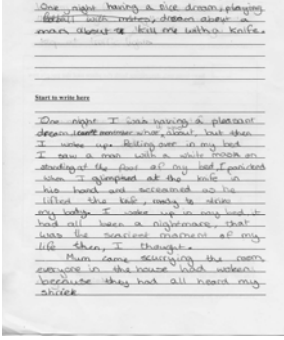 One night having a nice dream, playing
football with mates, dream about a
man about to kill me with a knife.
Start to write here
One night I was having a pleasant
dream, about, but then
I woke up. Rolling over in my bed
I saw a man with a white mask on
standing at the foot of my bed, I panicked
when I glimpsed at the knife in
his hand and screamed as he
lifted the knife, ready to strike
my body. I woke up in my bed it
had all been a nightmare, that
was the scariest moment of my
life then, I thought.
Mum came scurrying the room
everyone in the house had woken
because they had all heard my
shriek